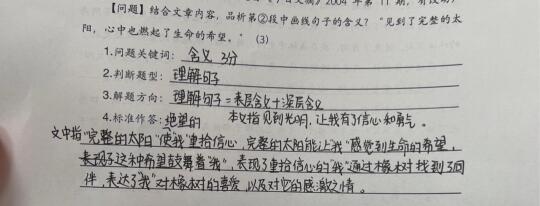 【问题】结合文章内容，品析第②段中画线句子的含义？“见到了完整的太
阳，心中也燃起了生命的希望。”（3）
1.问题关键词：含义 2分
2.判断题型：理解句子
3.解题方向：理解句子=表层含义+深层含义
4.标准作答：绝望的 本文指见到光明，让我有了信心和勇气。
文中指“完整的太阳”使“我”重拾信心，完整的太阳能让“我”感觉到生命的希望，
表现了这种希望鼓舞着“我”，表现了重拾信心的“我”通过橡树找到了同
伴，表达了“我”对橡树的喜爱，以及对它的感激之情。